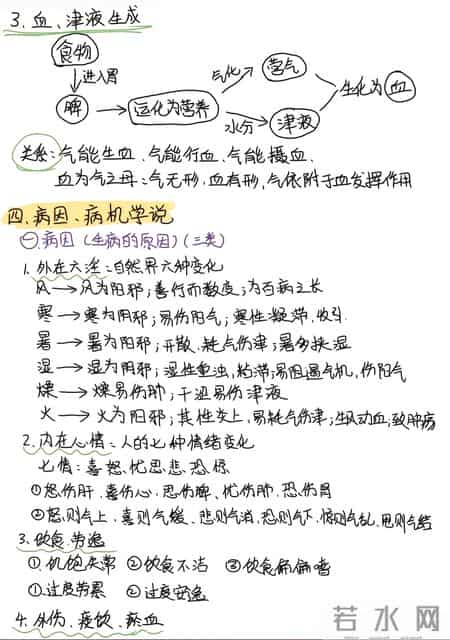 3. 血、津液生成
食物
进入胃
脾 → 运化为营养
气化 营气
水分 津液
生化为血
关系: 气能生血、气能行血、气能摄血.
血为气之母: 气无形、血有形, 气依附于血发挥作用
四、病因、病机学说
㊀病因 (生病的原因) (三类)
1. 外在六淫: 自然界六种变化
风 → 风为阳邪; 善行而数变; 为百病之长
寒 → 寒为阴邪; 易伤阳气; 寒性凝滞、收引.
暑 → 暑为阳邪; 升散、耗气伤津; 暑多挟湿
湿 → 湿为阴邪; 湿性重浊, 粘滞; 易阻遏气机, 伤阳气
燥 → 燥易伤肺; 干涩易伤津液
火 → 火为阳邪; 其性炎上, 易耗气伤津; 生风动血; 致肿疡
2. 内在心情: 人的七种情绪变化
七情: 喜怒忧思悲恐惊
①怒伤肝、喜伤心、思伤脾、忧伤肺、恐伤肾
②怒则气上、喜则气缓、悲则气消、恐则气下、惊则气乱、思则气结
3. 饮食、劳逸
①饥饱失常 ②饮食不洁 ③饮食偏嗜
①过度劳累 ②过度安逸
4. 外伤、痰饮、瘀血
若水网